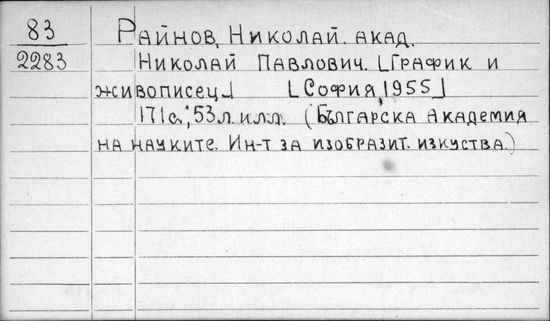 83 Райнов, Николай. акад.
2283 Николай Павлович. [График и
живописец] [София, 1955]
171с.; 53 л. илл. (Българска Академия
на науките. Ин-т за изобразит. изкуства.)